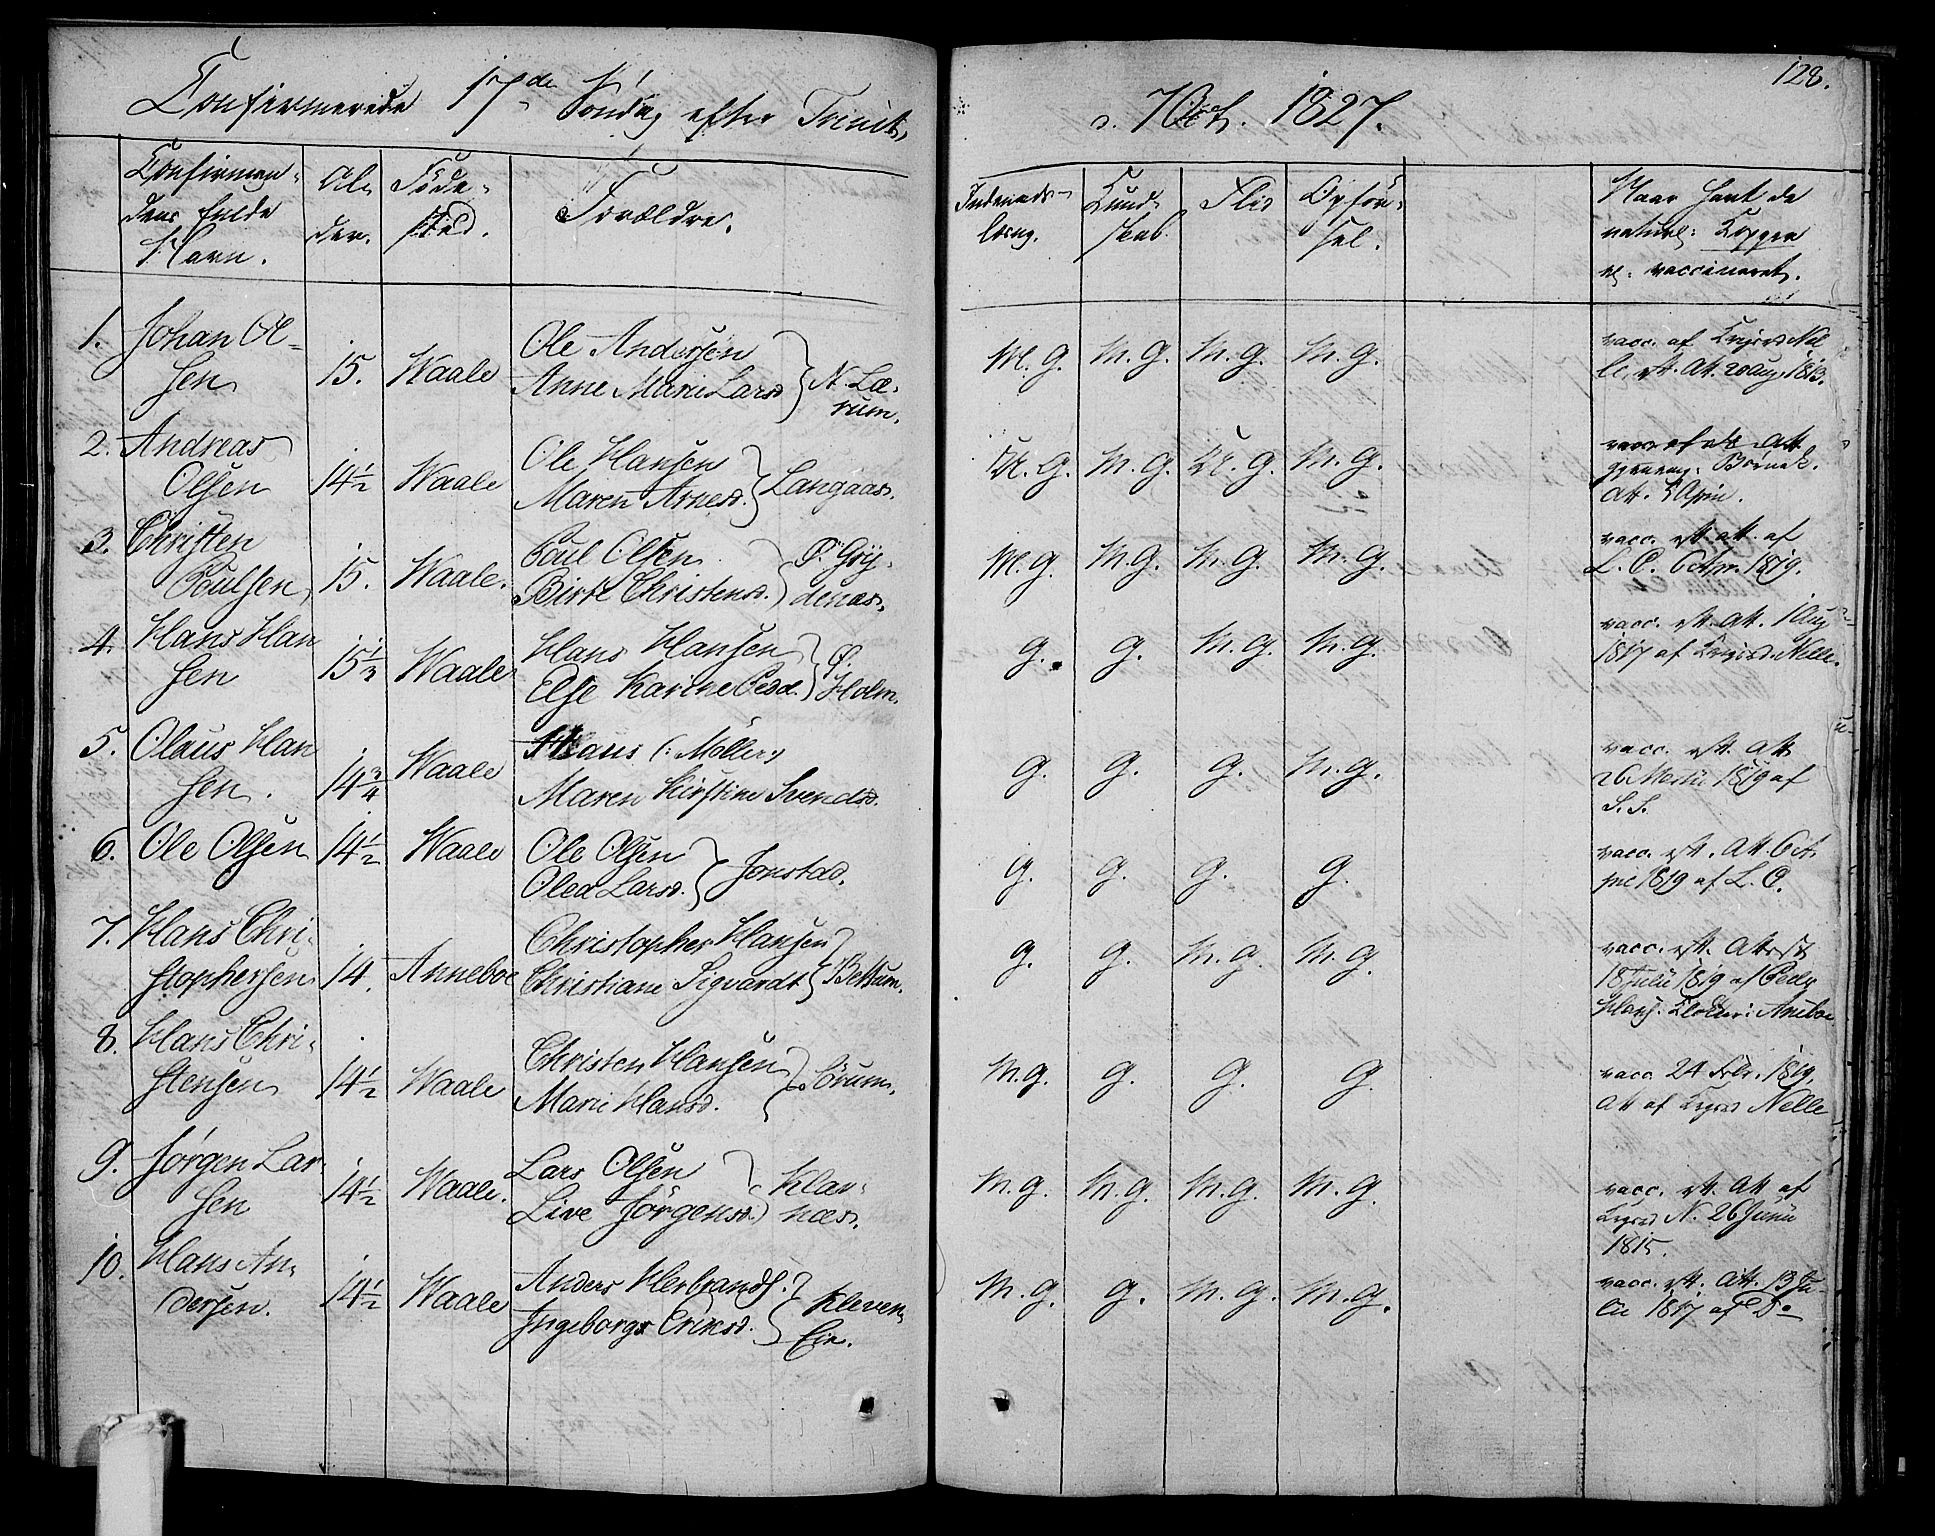 128.
Confirmerede 17de Søndag efter Trinit.
d. 7 Oct. 1827.
Confirman-
dens fulde
Navn.
Al-
der.
Føde-
sted.
Forældre.
Indenads-
læsng.
Kund-
skab.
Flid
Opför-
sel.
Naar havt de
naturl: Kopper
el. vaccineret.
1. Johan Ol-
sen
15.
Waale
Ole Andersen
Anne Marie Larsd.
N. Læ-
rum.
M. G. M. G. M. G. M. G.
vacc. af
att. 20 Aug. 1813.
2. Andreas
Olsen
14½
Waale
Ole Hansen
Maren Arnesd.
Langaas.
M. G. M. G.
att. 5 April.
3. Christen
Poulsen
15.
Waale.
Poul Olsen
Birte Christensd.
M. G. M. G. M. G. M. G.
vacc. att. af
1819.
4. Hans Han
sen
15½
Waale
Hans Hansen
Else Karine Pedd.
Ø.
Holm.
G. G. M. G. M. G.
vacc. att. 1 Aug
1817 af Nelle.
5. Olaus Han
sen.
14¾
Waale
Hans (: Möller)
Maren Kirstine Svendsd.
G. G. G. M. G.
vacc. att
26 Martii 1819 af
S. S.
6. Ole Olsen
14½
Waale
Ole Olsen
Olea Larsd.
Jonstad.
G. G. G. G.
vacc. Att. 6 A-
pril 1819 af L. C.
7. Hans Chri-
stophersen
14.
Anneboe
Christopher Hansen
Christiane Sigvardt
Bettum.
G. G. M. G. M. G.
vacc. Attest
18 Julii 1819 af Peder
Hans. Klokker: Aneboe
8. Hans Chri-
stensen
14½
Waale
Christen Hansen
Marie Hansd.
M. G. G. G. G.
vacc. 24 Febr. 1819.
att af Nelle
9. Jørgen Lar-
sen
14½
Waale.
Lars Olsen
Live Jørgensd.
Klar-
næs.
M. G. M. G. M. G. M. G.
vacc. att af
N. 26 Junii
1815.
10. Hans An-
dersen.
14½
Waale
Anders Herbrands.
Ingeborg Eriksd.
Kleven
Eie.
M. G. G. M. G. M. G.
vacc. Att. 13 Ju-
lii 1817 af Do